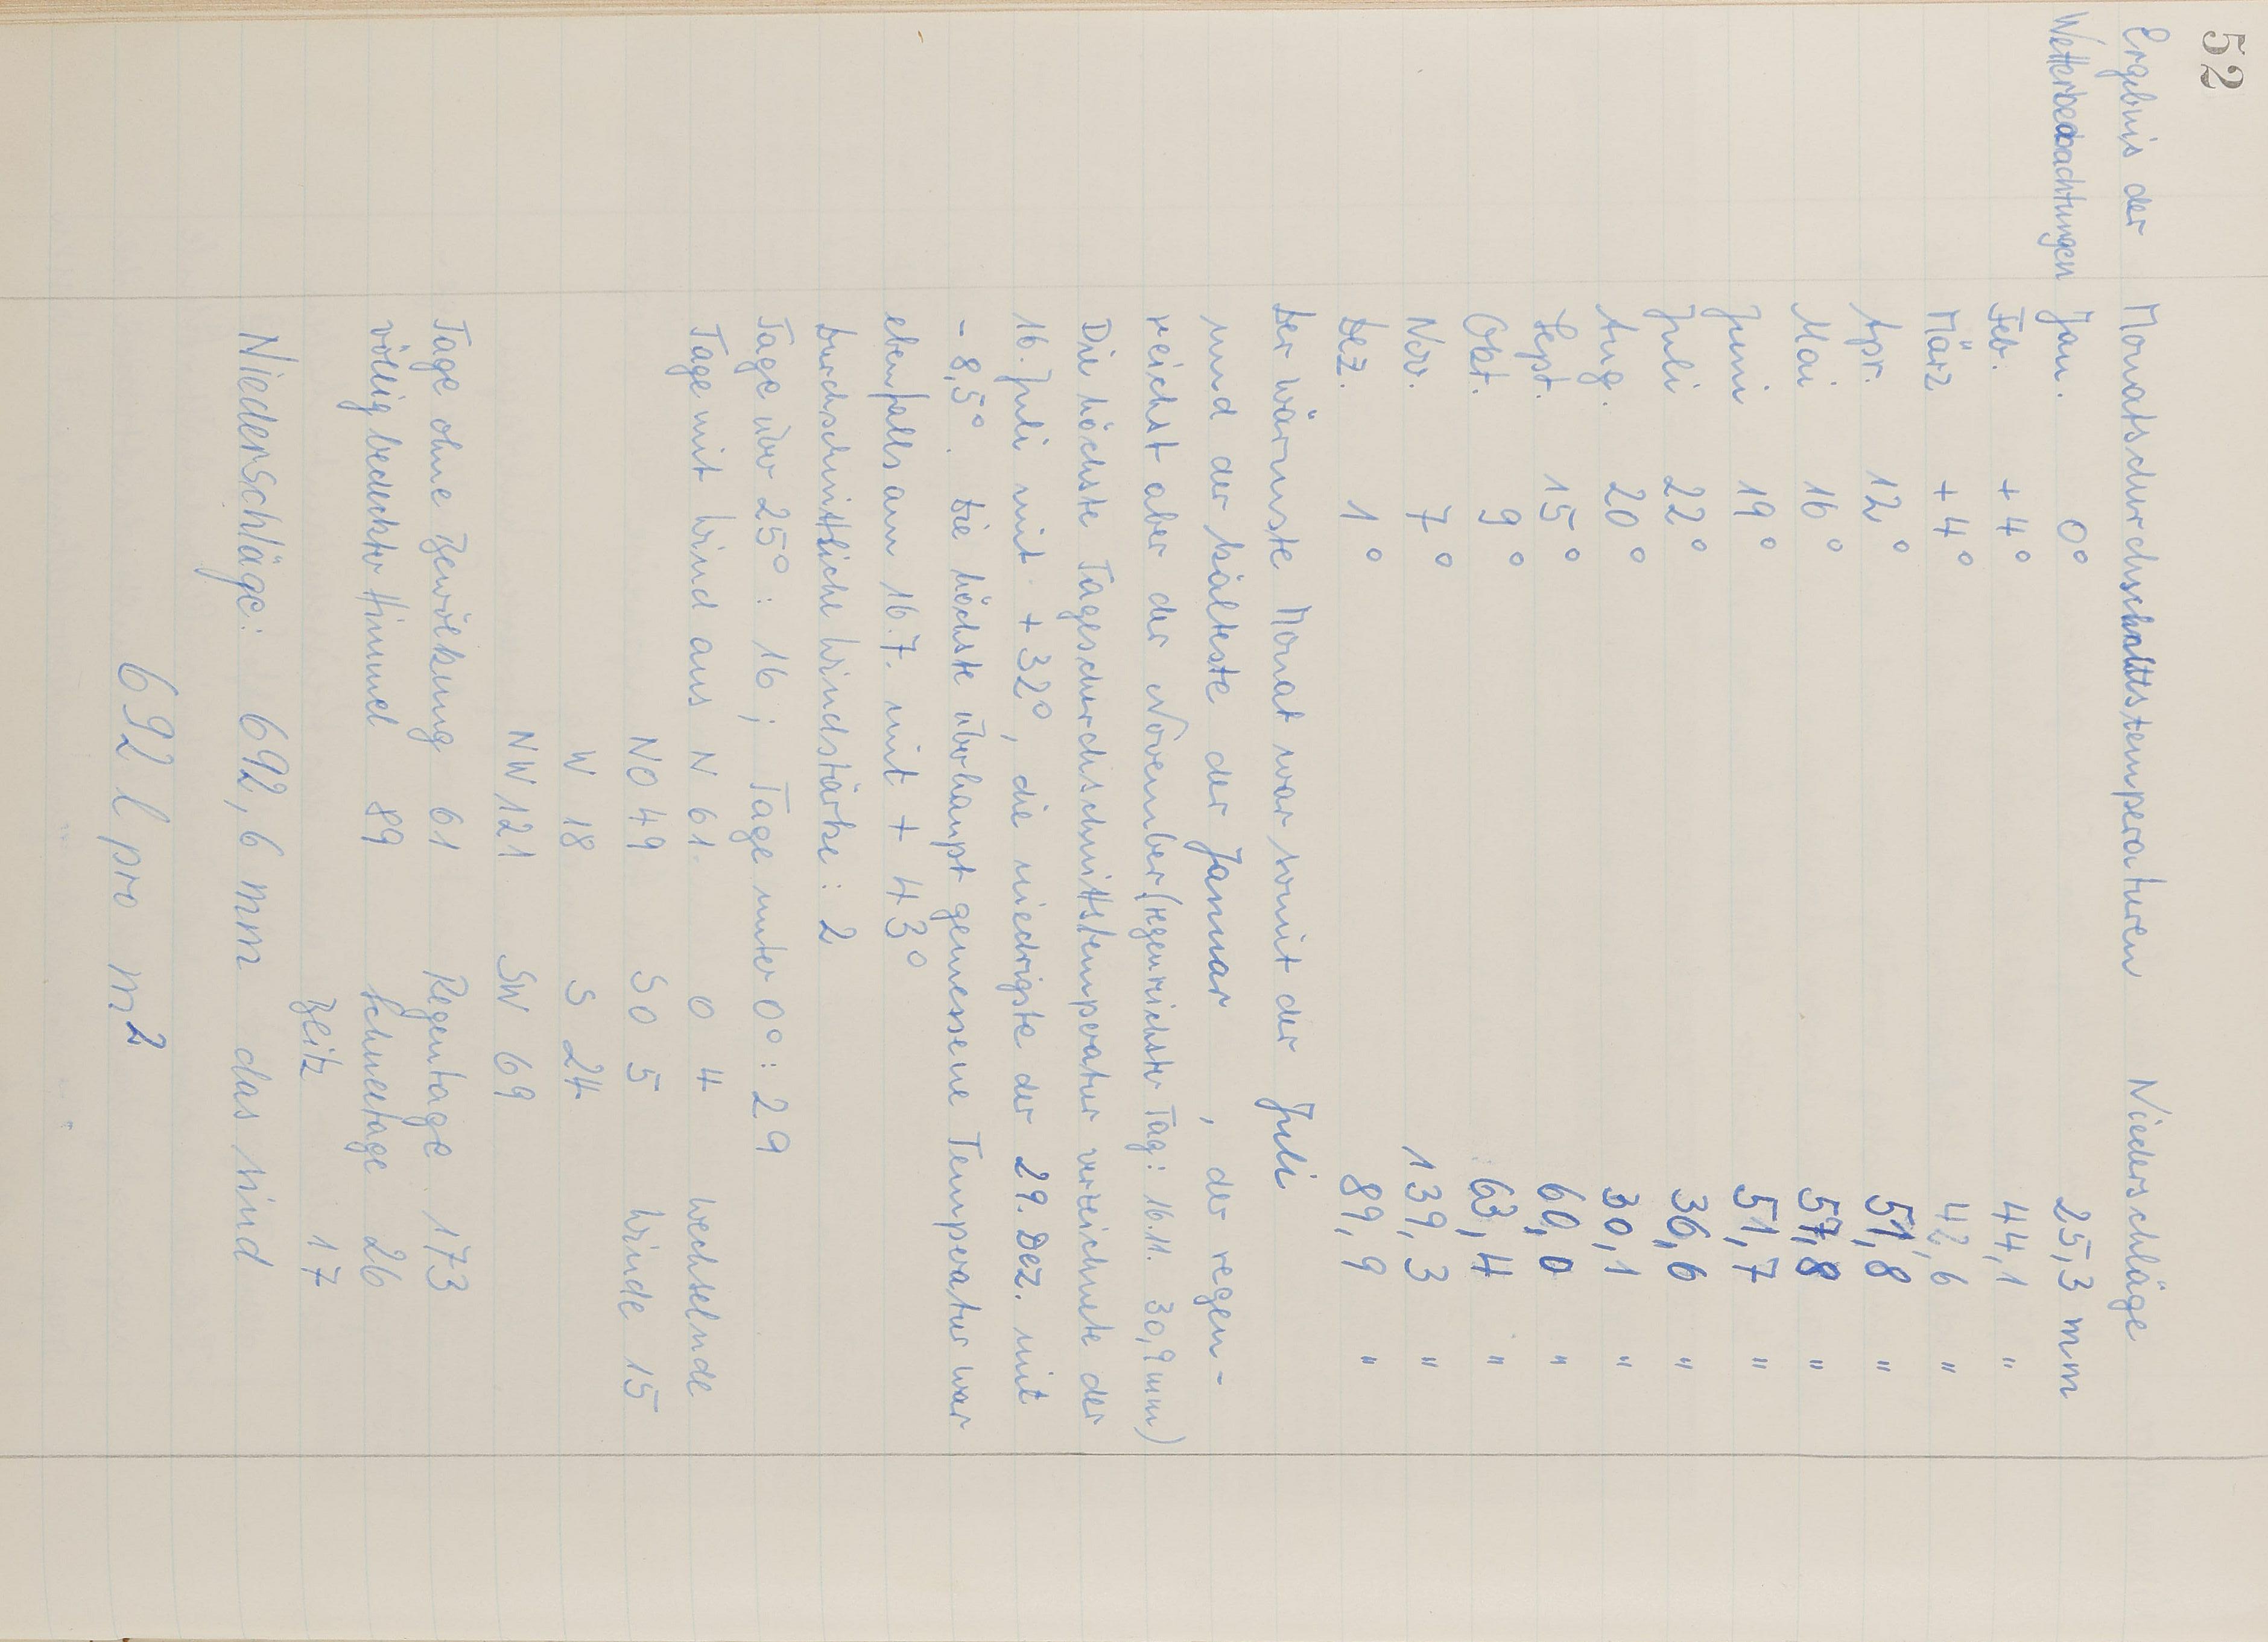 52
Ergebnis der Monatsdurchschnittstemperaturen Niederschläge
Wetterbeobachtungen Jan. 0° 25,3 mm
Feb. +4° 44,1 "
März +4° 42,6 "
Apr. 12° 51,8 "
Mai 16° 57,8 "
Juni 19° 51,7 "
Juli 22° 36,6 "
Aug. 20° 30,1 "
Sept. 15° 60,0 "
Okt. 9° 63,4 "
Nov. 7° 139,3 "
Dez. 1° 89,9 "
Der wärmste Monat war somit der Juli
und der kälteste der Januar , der regen-
reichst aber der November (regenreichster Tag: 16.11. 30,9 mm)
Die höchste Tagesdurchschnittstemperatur verzeichnete der
16. Juli mit +32°, die niedrigste der 29. Dez. mit
- 8,5°. Die höchste überhaupt gemessene Temperatur war
ebenfalls am 16.7. mit + 43°
Durchschnittliche Windstärke: 2
Tage über 25°: 16; Tage unter 0°: 29
Tage mit Wind aus N 61 O 4 wechselnde
NO 49 SO 5 Winde 15
W 18 S 24
NW 121 SW 69
Tage ohne Bewölkung 61 Regentage 173
völlig bedeckter Himmel 89 Schneetage 26
Blitz 17
Niederschläge: 692,6 mm das sind
692 l pro m²